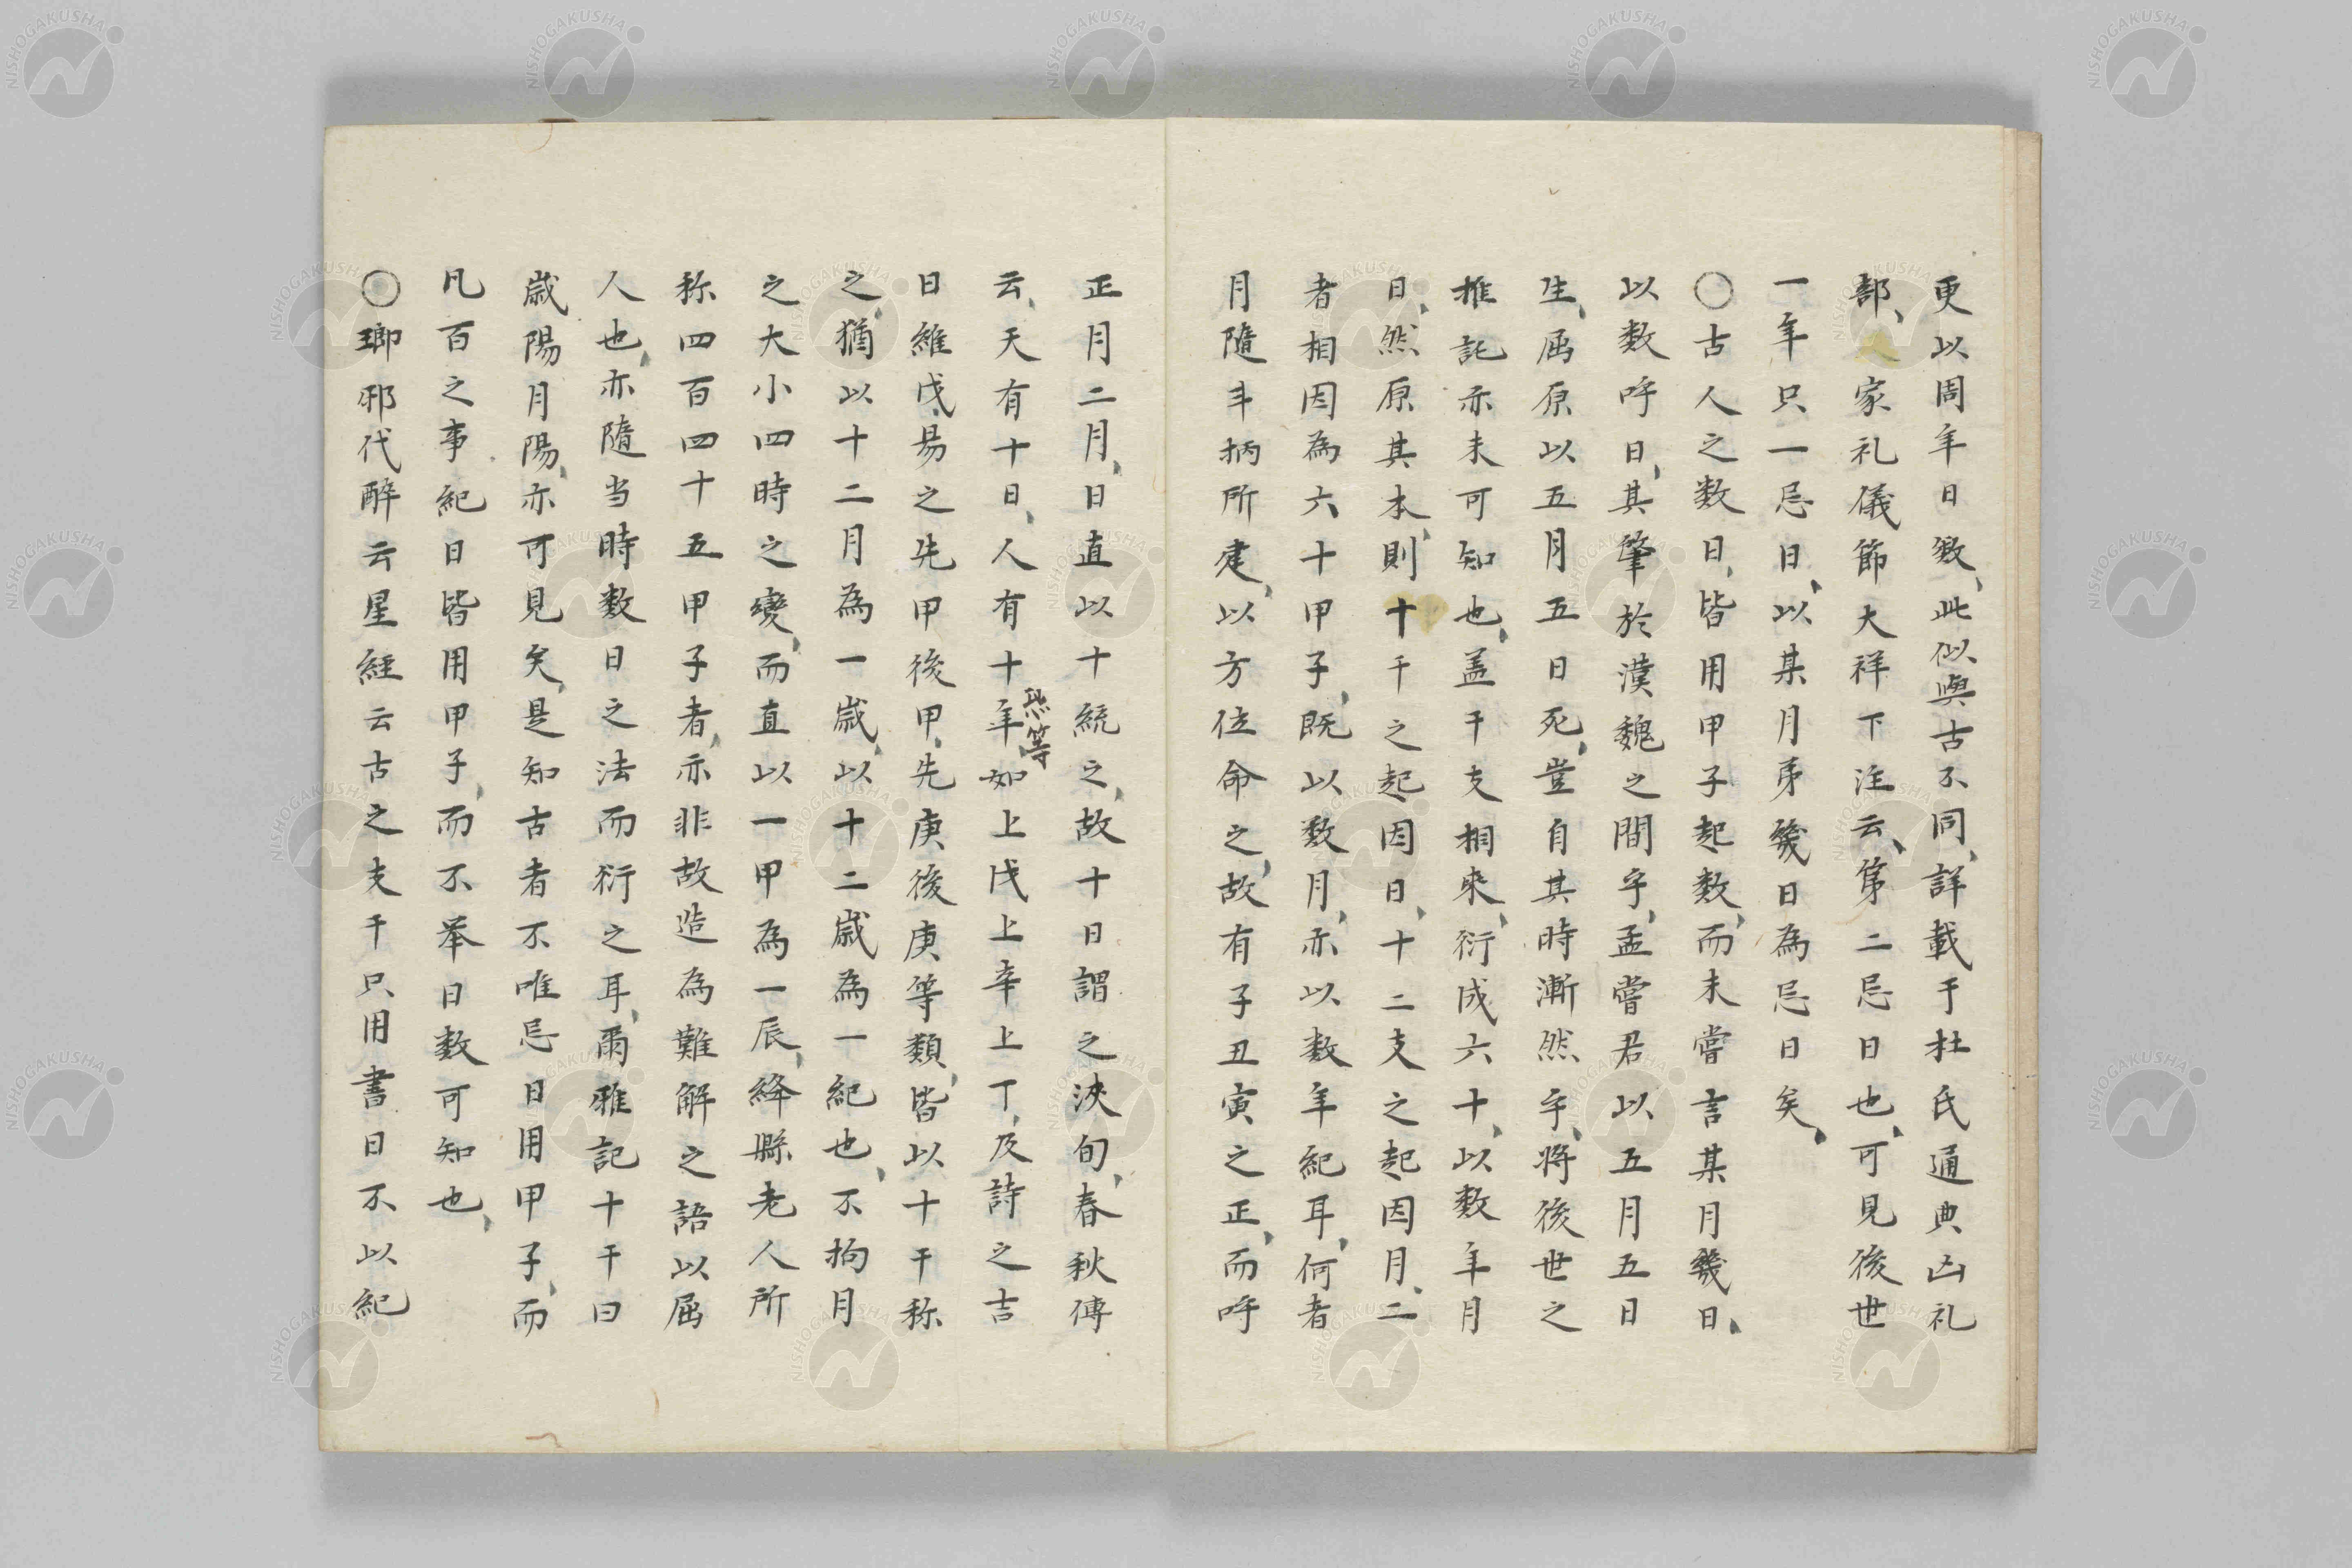 更以周年日数、此似與古不同、詳載于杜氏通典凶礼
部、家礼儀節大祥下注云、第二忌日也、可見後世
一年只一忌日、以某月第幾日為忌日矣、
○古人之数日、皆用甲子起数、而未嘗言某月幾日、
以数呼日、其肇於漢魏之間乎、孟嘗君以五月五日
生、屈原以五月五日死、豈自其時漸然乎、将後世之
推託亦未可知也、盖干支相乘、衍成六十、以数年月
日、然原其本、則十干之起因日、十二支之起因月、二
者相因為六十甲子、既以数月、亦以数年紀耳、何者
月隨斗柄所建、以方位命之、故有子丑寅之正、而呼
正月二月、日直以十統之、故十日謂之浹旬、春秋傳
云、天有十日、人有十年如上戊上辛上丁、及詩之吉
此等
日維戊、易之先甲後甲、先庚後庚等類、皆以十干称
之、猶以十二月為一歳、以十二歳為一紀也、不拘月
之大小四時之變、而直以一甲為一辰、絳縣老人所
称四百四十五甲子者、亦非故造為難解之語以屈
人也、亦隨当時数日之法而衍之耳、爾雅記十干曰
歳陽月陽、亦可見矣、是知古者不唯忌日用甲子、而
凡百之事紀日皆用甲子、而不举日数可知也、
○瑯邪代醉云星経云古之支干只用書日不以紀